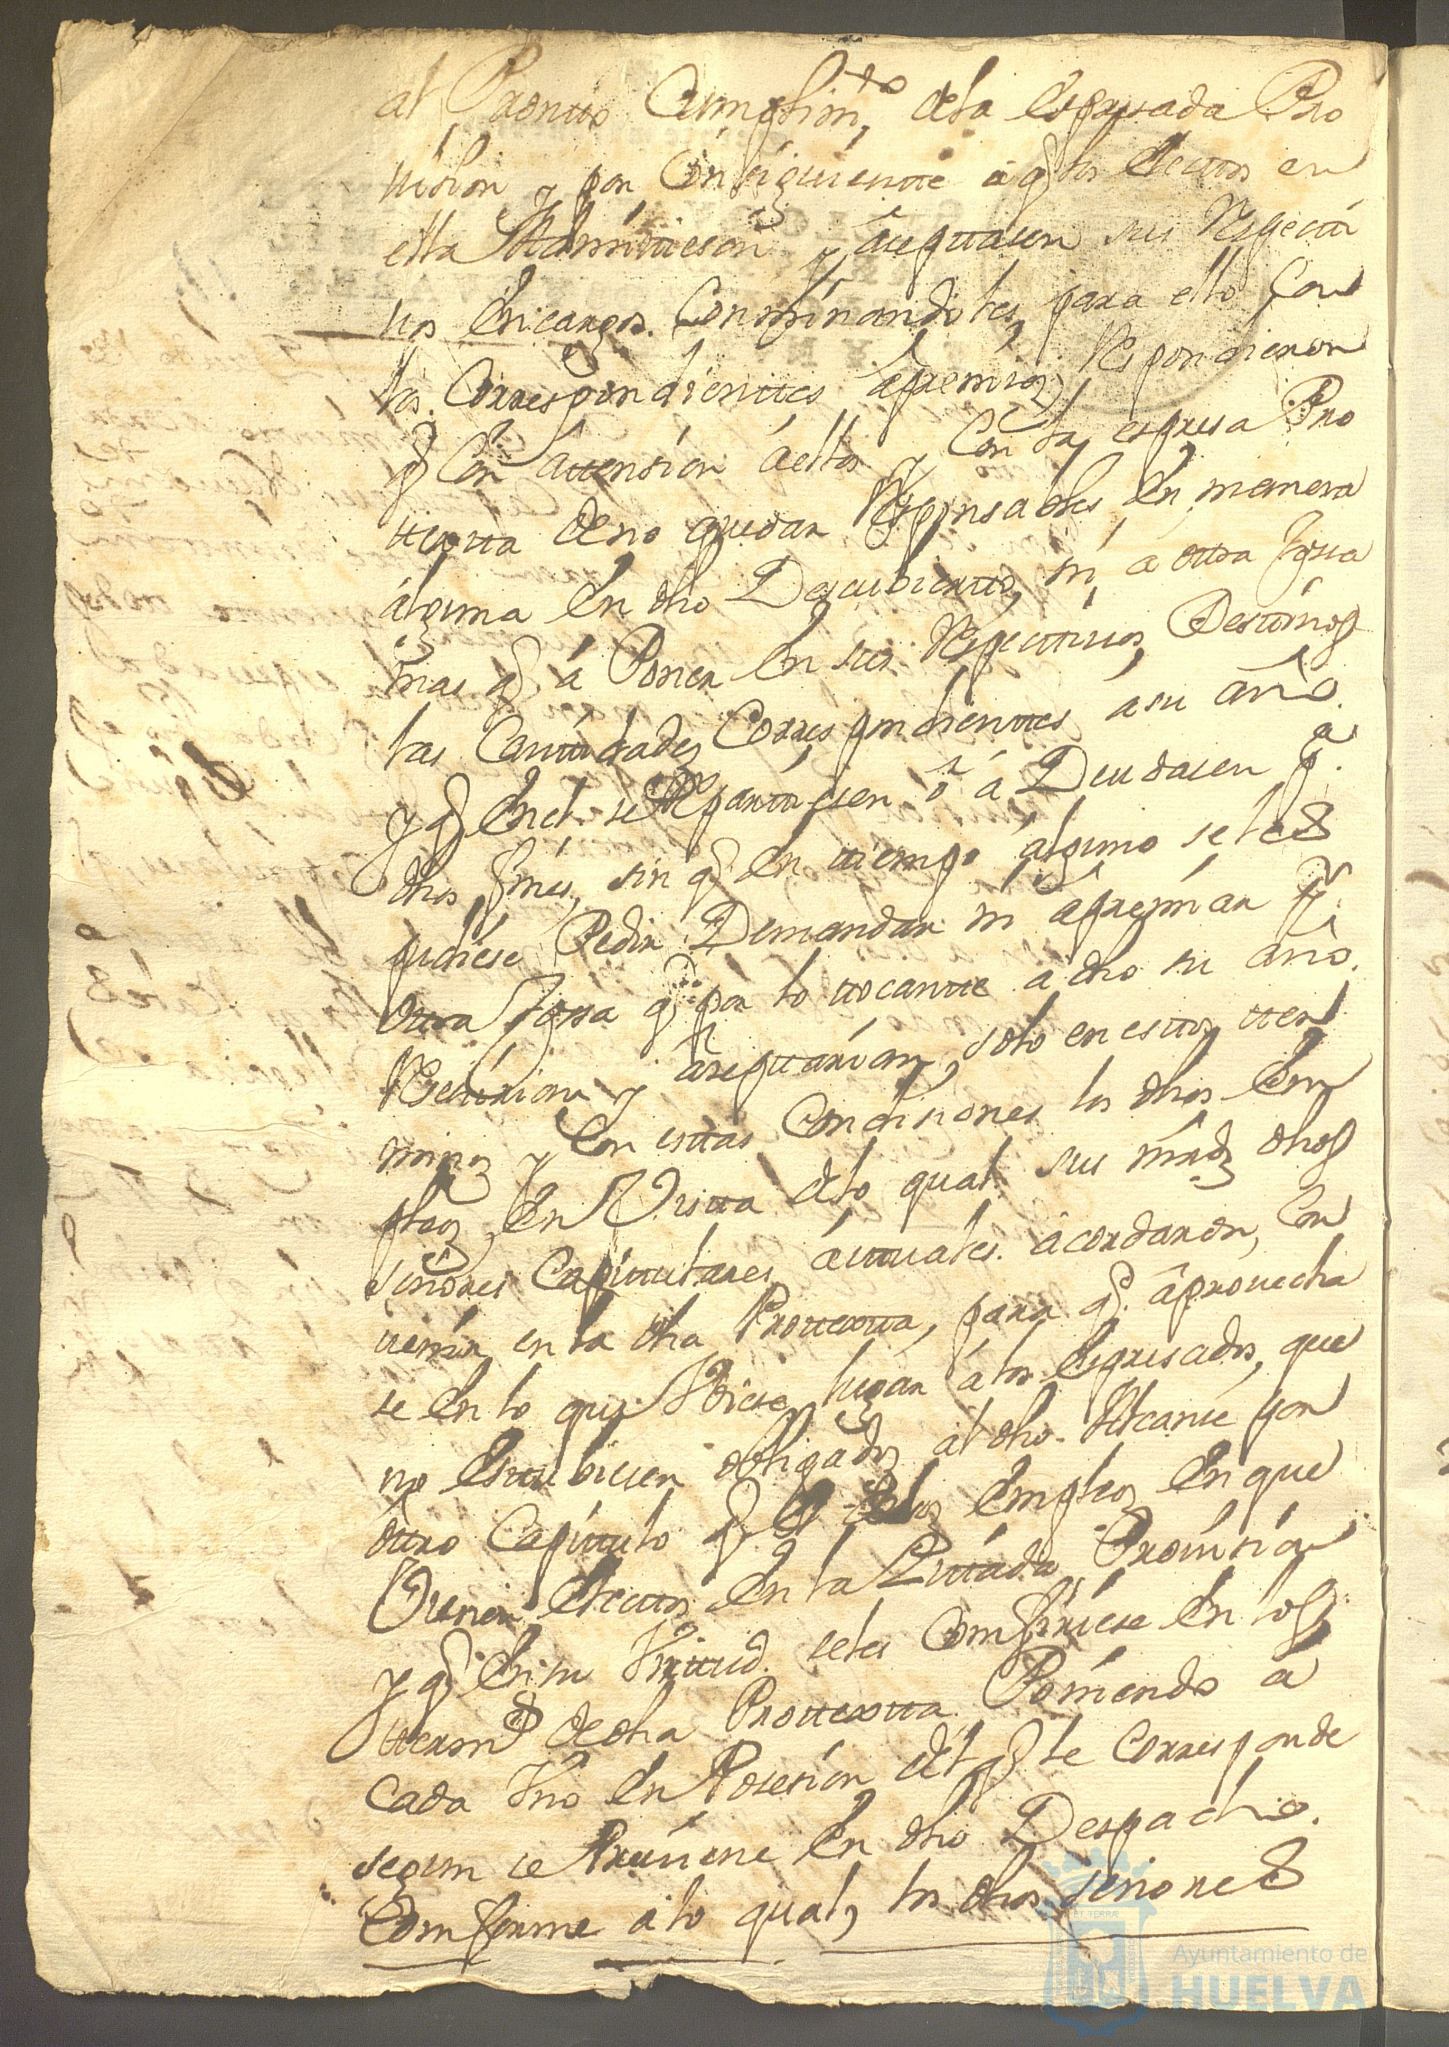 al Prontto Cumplim.to dela espresada Pro
uision y por Consiguiente a q los electos en
ella Admittiesen y aseptasen sus Respecti
uos Encargos. Conminandoles para ello con
los Correspondienttes apremios, Respondieron
q Con attension a ellos y Con la espresa Pro
ttextta deno quedar Responsables En manera
alguna En dho Descubiertto, ni a ottra Cossa
mas q a Poner En sus Respecttiuos Destinos
las Canttidades Correspondienttes a su año
y q Enel se Reparttiesen o a Deudasen p.a
dhos fines, sin q En ttiempo alguno se les
pudiese Pedir Demandar ni apremiar p.r
ottra Cossa q por lo ttocantte a dho su año.
Reciuirian y aseptarian, solo en esttos tter
minos y Con esttas Condisiones los dhos Em
pleos, En Vistta delo qual sus mrds dhos
señores Capittulares acttuales acordaron, Con
uenir en la dha Prottextta, para q aprouecha
se En lo que Vbiese lugar a los Espresados, que
no Esttubiesen obligados al dho Alcanse por
ottro Capittulo q el delos Empleos En que
Vienen Electtos En la Zittada Prouision
y q En su Virttud seles Comfiriese En los
tterm.os de dha Prottextta Poniendo a
Cada Vno En Posesion del q le Corresponde
segun se Preuiene En dho Despacho.
Comforme a lo qual, los dhos señores
Ayuntamiento de
HUELVA